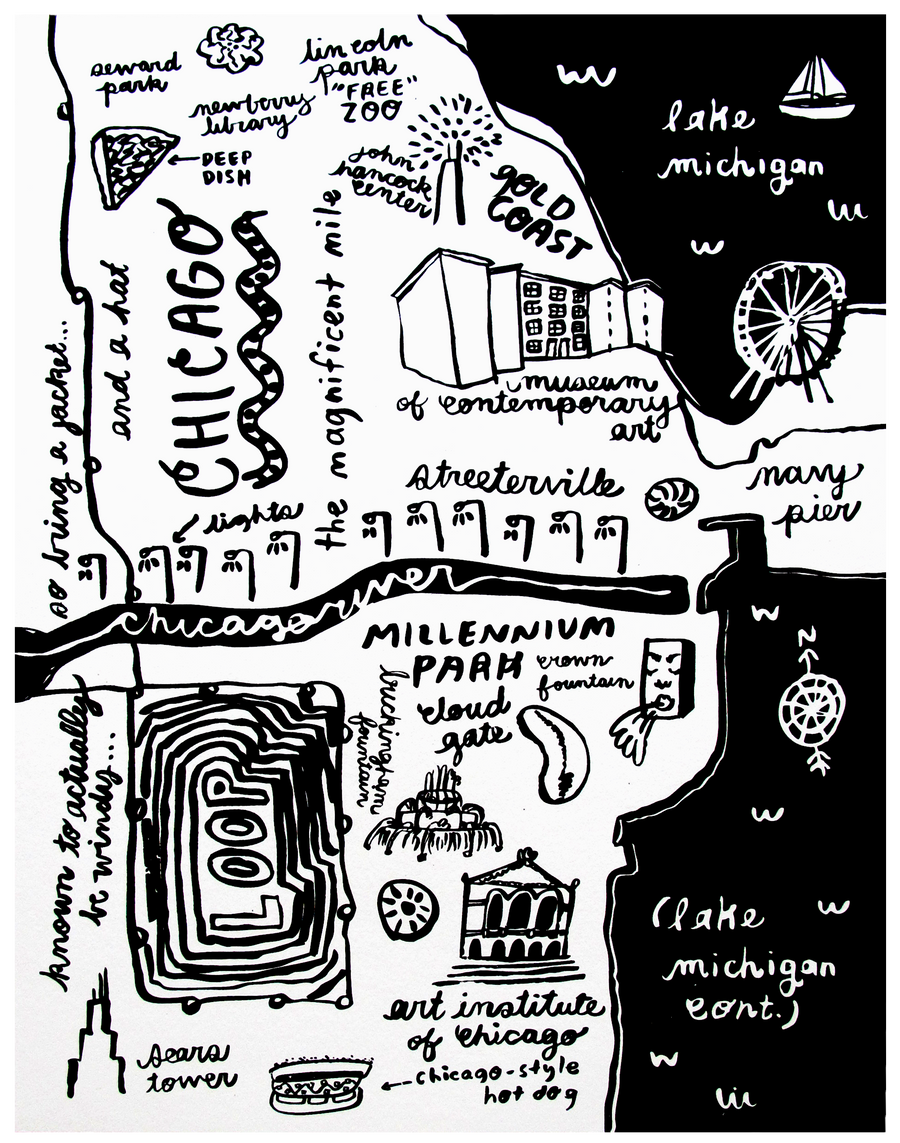 seward
park
lincoln
park
"FREE"
ZOO
newberry
library
DEEP
DISH
john
hancock
center
GOLD
COAST
lake
michigan
CHICAGO
the magnificent mile
museum
of contemporary
art
streeterville
navy
pier
lights
known to actually
be windy...
so bring a jacket...
and a hat
chicago river
MILLENNIUM
PARK
crown
fountain
cloud
gate
buckingham
fountain
LOOP
N
art institute
of chicago
sears
tower
chicago-style
hot dog
(lake
michigan
cont.)